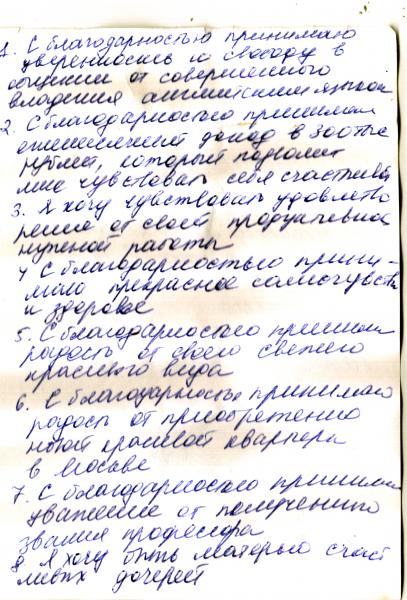 1. С благодарностью принимаю
уверенность и свободу в
общении от совершенного
владения английским языком
2. С благодарностью принимаю
ежемесячный доход в 300 тыс
рублей, который позволяет
мне чувствовать себя счастливой
3. Я хочу чувствовать удовлетво
рение от своей продуктивной
нужной работы
4 С благодарностью прини-
маю прекрасное самочувствие
и здоровье
5. С благодарностью принимаю
радость от своего свежего
красивого вида
6. С благодарностью принимаю
радость от приобретению
новой красивой квартиры
в Москве
7. С благодарностью принимаю
уважение от полученного
звания профессора
8 Я хочу быть матерью счаст
ливых дочерей